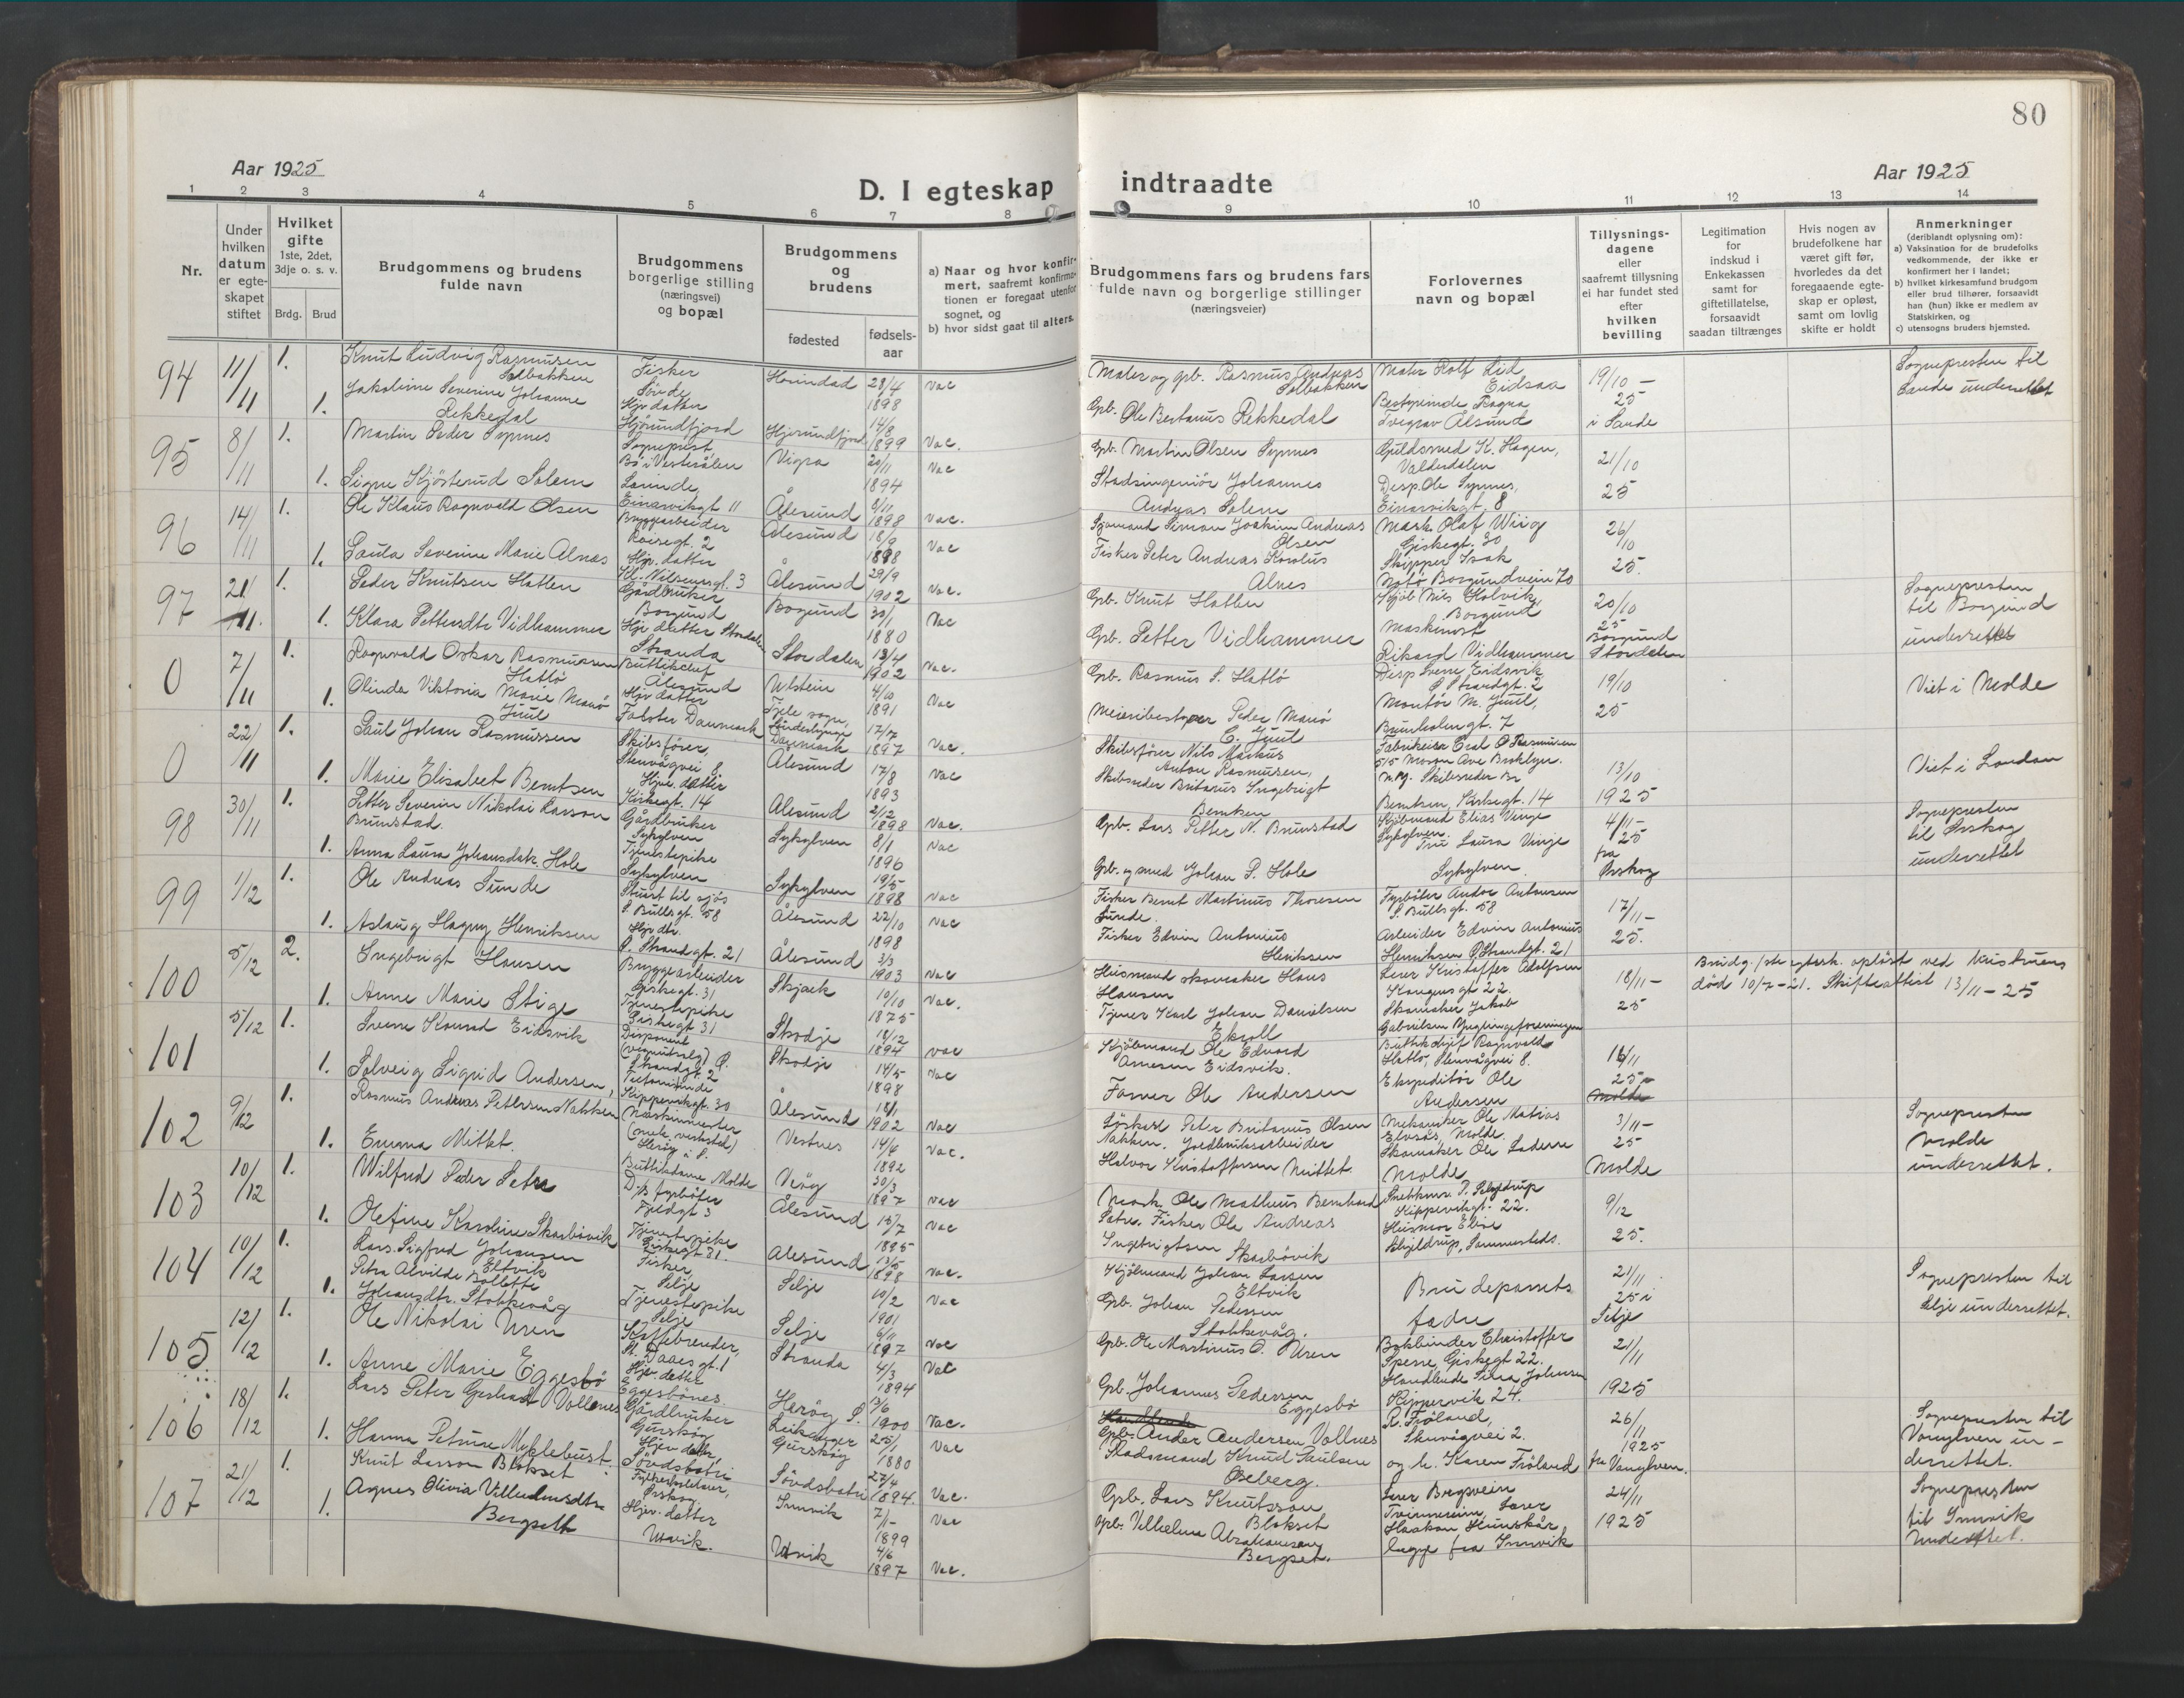 80
Aar 1925
D. I egteskap
indtraadte
Aar 1925
1 2 3 4 5 6 7 8 9 10 11 12 13 14
Nr.
Under hvilken datum er egte-skapet stiftet
Hvilket gifte 1ste, 2det, 3dje o. s. v.
Brdg. Brud
Brudgommens og brudens fulde navn
Brudgommens borgerlige stilling (næringsvei) og bopæl
Brudgommens og brudens
fødested
fødsels-aar
a) Naar og hvor konfir-mert, saafremt konfirma-tionen er foregaat utenfor sognet, og
b) hvor sidst gaat til alters.
Brudgommens fars og brudens fars fulde navn og borgerlige stillinger (næringsveier)
Forlovernes navn og bopæl
Tillysnings-dagene eller saafremt tillysning ei har fundet sted efter hvilken bevilling
Legitimation for indskud i Enkekassen samt for giftetillatelse, forsaavidt saadan tiltrænges
Hvis nogen av brudefolkene har været gift før, hvorledes da det foregaaende egte-skap er opløst, samt om lovlig skifte er holdt
Anmerkninger (deriblandt oplysning om):
a) Vaksination for de brudefolks vedkommende, der ikke er konfirmert her i landet;
b) hvilket kirkesamfund brudgom eller brud tilhører, forsaavidt han (hun) ikke er medlem av Statskirken, og
c) utensogns bruders hjemsted.
94 11/11 1. Knut Ludvig Rasmussen Solbakken Fisker Sövde 28/4 1898 vac
Mater og gpb. Rasmus Andreas Solbakken Mater Rolf Eid Eidsaa 19/10 – 25 i Sande
Sognepresten til Sande underrettet
1. Jakobine Severine Johanne Rekkedal Hjv datter Hjörundfjord Hjörundfjord 14/8 1899 vac.
Gpb. Ole Bertanus Rekkedal Ragna Ålesund
95 8/11 1. Martin Peder Synnes Sogneprest Bö i Vesterålen Vigra 20/11 1894 vac
Gpb. Martin Olsen Synnes Guldsmed K. Hagen, Valderdalen 21/10 25
1. Signe Kjösterud Solem Einarvikgt 11 Ålesund 6/11 1898 vac.
Stadsingeniör Johannes Andreas Solem Disp. Ole Synnes, Einarvikgt. 8
96 14/11 1. Ole Klaus Ragnvald Olsen Bryggearbeider Röisegt. 2 Ålesund 18/9 1898 vac
Sjömand Simon Joakim Andreas Olsen Mask. Olaf Wiig Giskegt. 30 26/10 25.
1. Paula Severine Marie Alnæs Hjv. datter Kl. Nilsensgt. 3 Ålesund 29/9 1902 vac.
Fisker Peter Andreas Karolus Alnes Skipper Isak Notö Borgundvein 70
97 21/11. 1. Peder Knutsen Hatlen Gårdbruker Borgund Borgund 30/1 1880 vac
Gpb. Knut Hatlen Kjöb. Nils Holvik, Borgund 20/10 25 Borgund Stordalen
Sognepresten til Borgund underrettet
1. Klara Pettersdtr Vidhammer Hjv datter Stordalen Stordalen 13/4 1902 vac.
Gpb. Petter Vidhammer Maskinist Rikard Vidhammer
0 7/11 1. Ragnvald Oskar Rasmussen Hatlö Butikchef Ålesund Ulstein 4/10 1891 vac
Gpb. Rasmus S. Hatlö Disp. Sverre Eidsvik Ö Strandgt. 2 19/10 25
Viet i Molde
1. Olinda Viktoria Marie Juul Hjv datter Falster Danmark Danmark 17/7 1897 vac.
Meieribestyrer Peder C. Juul Montör M. Juul, Brunholmgt. 7
0 22/11 1. Paul Johan Rasmussen Skibsförer, Stenvågvei 8. Ålesund 17/8 1893 vac
Skibsförer Nils Markus Anton Rasmussen, Fabrikeier Carl O Rasmussen 13/10 1925
Viet i London
1. Marie Elisabet Berntsen Hjv. datter Kirkegt. 14 Ålesund 2/12 1898 vac.
Skibsreder Britanus Ingebrigt Berntsen Skibsreder Br Berntsen, Kirkegt. 14
98 30/11 1. Petter Severin Nikolai Larson Brunstad. Gårdbruker Sykylven Sykylven 8/1 1896 vac
Gpb. Lars Petter N. Brunstad Kjöbmand Elias Vinje Sykylven. 4/11 – 25 fra Ørskog
Sognepresten til Ørskog underrettet
1. Anna Laura Johansdatr. Hole Tjenestepike Sykylven Sykylven 19/5 1898 vac
Gpb. og smed Johan P. Hole Fru Laura Vinje Sykylven
99 1/12 1. Ole Andreas Sunde Stuert til sjös S. Bullsgt. 58 Ålesund 22/10 1898 vac
Fisker Bernt Martinus Thoresen Sunde. Fyrböter Andor Antonsen S. Bullsgt. 58 17/11 – 25.
1. Aslaug Hagny Henriksen Hjv dtr. Ö. Strandgt. 21 Ålesund 3/3 1903 vac
Fisker Edvin Antonius Henriksen Arbeider Edvin Antonius Henriksen Ö Strandgt. 21
100 5/12 2. Ingebrigt Hansen Bryggearbeider Giskegt. 31 Skjåk 10/10 1875 vac.
Husmand skomaker Hans Hansen Lærer Kristoffer Adolfsen Kongensgt 22. 18/11 – 25
Brudg. 1ste egtesk. oplöst ved hustruens död 10/7 – 21. Skifteattest 13/11 – 25
1. Anne Marie Stige Tjenestepike Giskegt 31 Skodje 18/12 1894 vac
Tjener Karl Johan Danielsen Ekroll Skomaker Jakob Gabrielsen Ynglingeforeningen
101 5/12 1. Sverre Konrad Eidsvik Disponent Ö. Strandgt. 2 Skodje 14/5 1898 vac
Kjöbmand Ole Edvard Arnesen Eidsvik. Butikchef Ragnvald Hatlö, Stenvågvei 8. 16/11 25
1. Solveig Sigrid Andersen, Skippervikgt. 30 Ålesund 18/1 1902 vac
Former Ole Andersen Ekspeditör Ole Andersen
102 9/12 1. Rasmus Andreas Petersen Nakken Maskinmester (mek. verksted) Vestnes 14/4 1892 vac.
Löskarl Peter Britanus Olsen Nakken. Jordbruksarbeider Mekaniker Ole Matias Elvsås, Molde. 3/11 – 25 Molde
Sognepresten Molde underrettet.
1. Emma Mittet. Butikdame Molde Veöy 30/3 1897 vac
Halvor Kristoffersen Mittet. Skomaker Ole Molde
103 10/12 1. Wilfred Peder Sætre D/S fyrböter Fjeldgt 3 Ålesund 15/7 1895 vac
Mask. Ole Matheus Bernhard Sætre. Snekkerm. P. Skjeldrup Skippervikgt. 22. 9/12 25.
1. Olefine Karoline Skarbövik Tjenestepike Giskegt 31. Ålesund 13/5 1898 vac.
Fisker Ole Andreas Ingebrigtsen Skarbövik Husmor Elise Skjeldrup, Sammesteds.
104 10/12 1. Lars Sigfred Johansen Eltvik Fisker Selje Selje 10/2 1901 vac
Kjöbmand Johan Larsen Eltvik Brudeparrets fædre 21/11 25 i Selje
Sognepresten til Selje underrettet.
1. Petra Alvilde Bollette Johansdtr. Stokkevåg Tjenestepike Selje Selje 6/11 1897 vac
Gpb. Johan Pedersen Stokkevåg.
105 12/12 1. Ole Nikolai Uren Kaffebrender, St. Daaesgt. 1 Stranda 4/3 1894 vac
Gpb. Ole Martinus O. Uren Bokbinder Christoffer Sperre, Giskegt 22. 21/11 1925
1. Anne Marie Eggesbö Hjv. datter Eggesbönes Heröy 13/6 1900 vac.
Gpb. Johannes Pedersen Eggesbö Handlende Petra Johansen Skippervik 24.
106 18/12 1. Lars Peter Gerhard Vollnes Gårdbruker Gurskøy Gurskøy 25/1 1880 vac
Gpb. Ander Andersen Vollnes R. Fröland, Stenvågvei 2. 26/11 1925 fra Vanylven.
Sognepresten til Vanylven un-derrettet.
1. Hanna Petrine Myklebust. Hjv datter, Sövdsbotn Sövdsbotn 27/4 1894. vac.
Stadsmand Knud Paulsen Øeberg. og h. Karen Fröland
107 21/12 1. Knut Larson Blokset Ørskog Innvik 7/1 – 1899 vac
Gpb. Lars Knutsson Blokset Lærer Bergsvein 24/11 1925
Sognepresten til Innvik underrettet.
1. Agnes Olivia Villumsdtr Bergset Hjv. datter Utvik. Utvik 4/6 1897 vac.
Gpb. Vilhelm Abrahamson Bergset. Lærer Haakon lagt fra Innvik